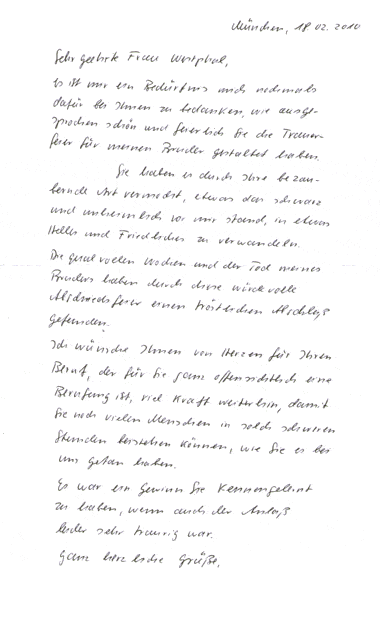 München, 18.02.2010
Sehr geehrte Frau Westphal,
es ist mir ein Bedürfnis mich nochmals
dafür bei Ihnen zu bedanken, wie ausge-
sprochen schön und feierlich Sie die Trauer-
feier für meinen Bruder gestaltet haben.
Sie haben es durch Ihre bezau-
bernde Art vermocht, etwas das schwarz
und unheimlich vor mir stand, in etwas
Helles und Friedliches zu verwandeln.
Die qualvollen Wochen und der Tod meines
Bruders haben durch diese würdevolle
Abschiedsfeier einen tröstlichen Abschluß
gefunden.
Ich wünsche Ihnen von Herzen für Ihren
Beruf, der für Sie ganz offensichtlich eine
Berufung ist, viel Kraft weiterhin, damit
Sie noch vielen Menschen in solch schweren
Stunden beistehen können, wie Sie es bei
uns getan haben.
Es war ein Gewinn Sie kennengelernt
zu haben, wenn auch der Anlaß
leider sehr traurig war.
Ganz herzliche Grüße,